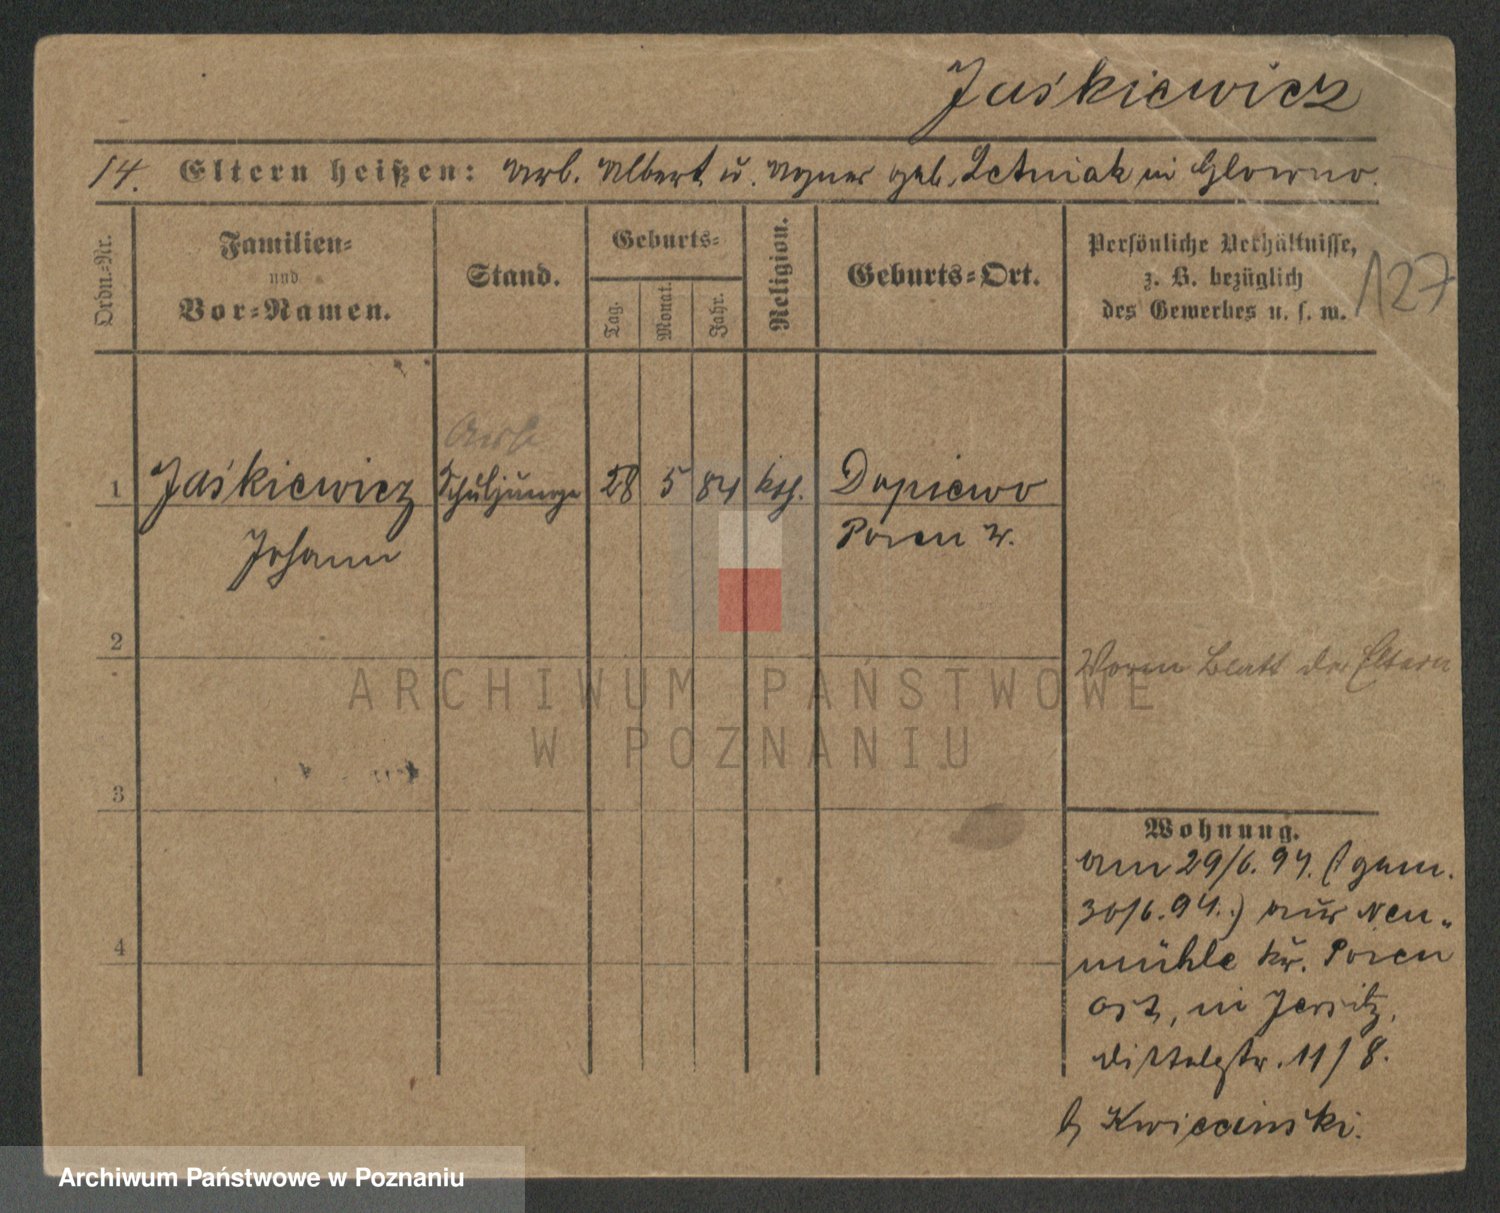 Jaśkiewicz
14. Eltern heißen: Arb. Albert u. Agnes geb. Letniak in Glowno.
Ordn.-Nr.
Familien-
und
Vor-Namen.
Stand.
Geburts-
Tag.
Monat.
Jahr.
Religion.
Geburts-Ort.
Persönliche Verhältnisse,
z. B. bezüglich
des Gewerbes u. s. w.
127
1 Jaśkiewicz Schuljunge 28 5 84 kth. Dopiewo
Johann Posen W.
2
Blatt der Eltern
3
4
Wohnung.
am 29/6. 94. (gem.
30/6. 94.) aus Neu-
mühle Kr. Posen
Ost, in Jersitz,
11/8.
b Kwieciński.
ARCHIWUM PAŃSTWOWE
W POZNANIU
Archiwum Państwowe w Poznaniu